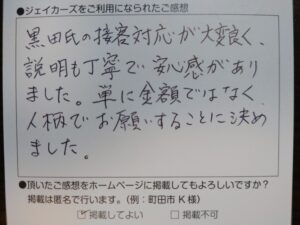 ●ジェイカーズをご利用になられたご感想
黒田氏の接客対応が大変良く、
説明も丁寧で安心感があり
ました。単に金額ではなく、
人柄でお願いすることに決め
ました。
●頂いたご感想をホームページに掲載してもよろしいですか？
掲載は匿名で行います。（例：町田市 K 様）
☑掲載してよい　□掲載不可